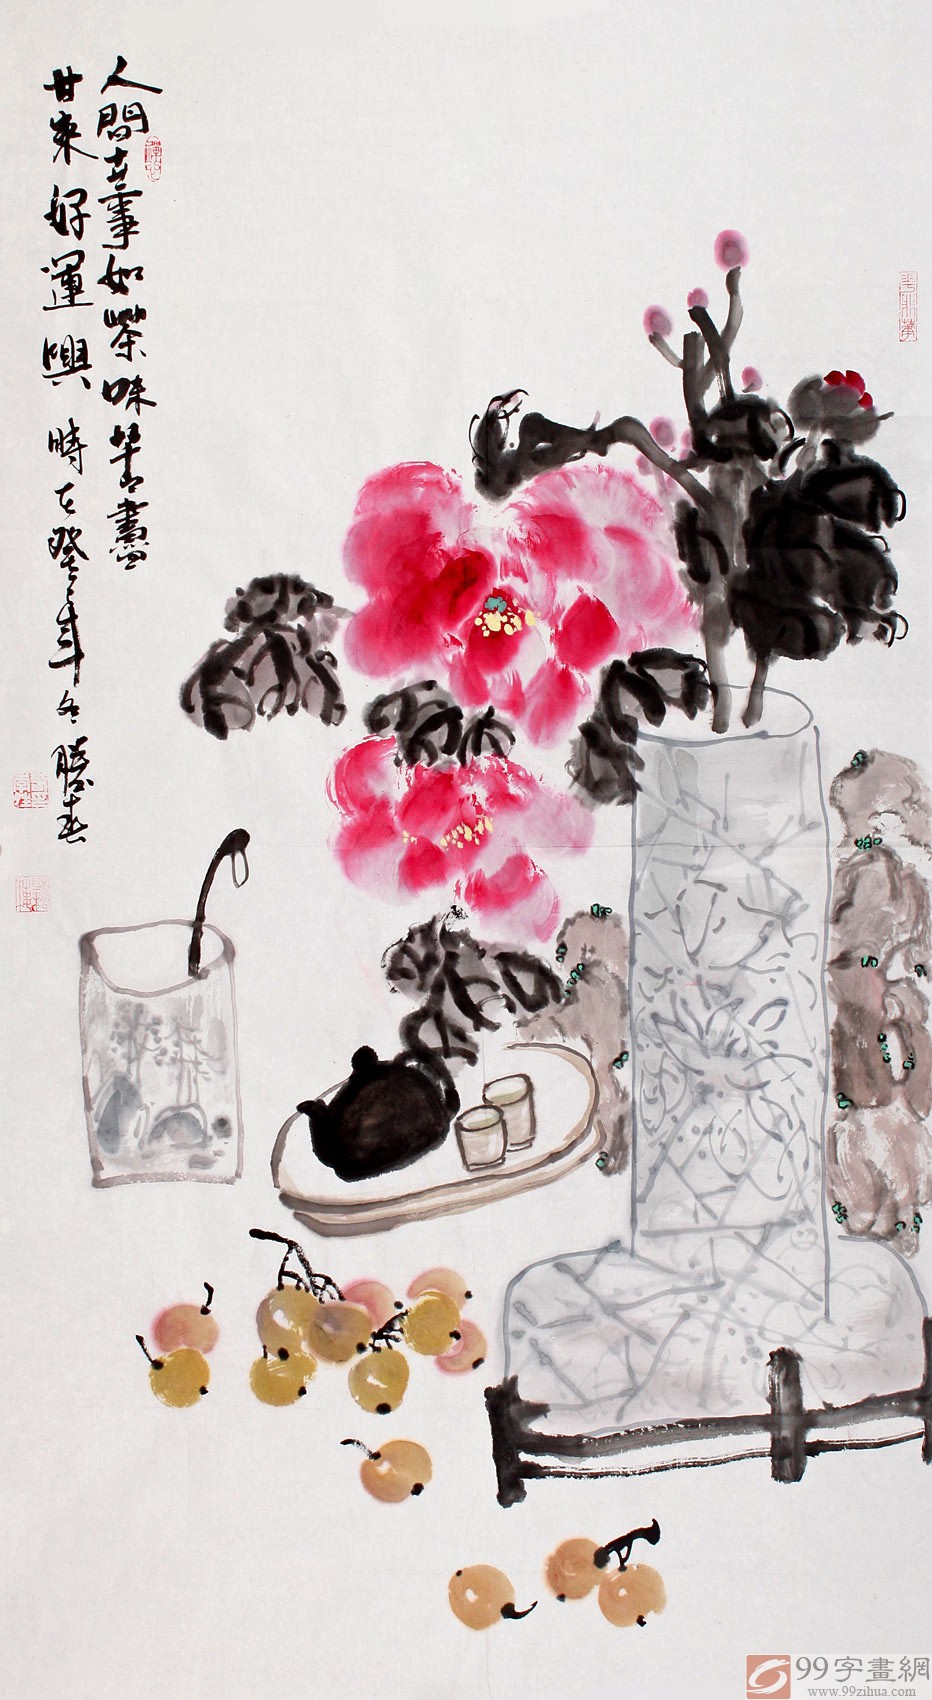 人間世事如茶味苦盡
甘來好運興時在癸巳年冬勝春
99字畫網
www.99zihua.com